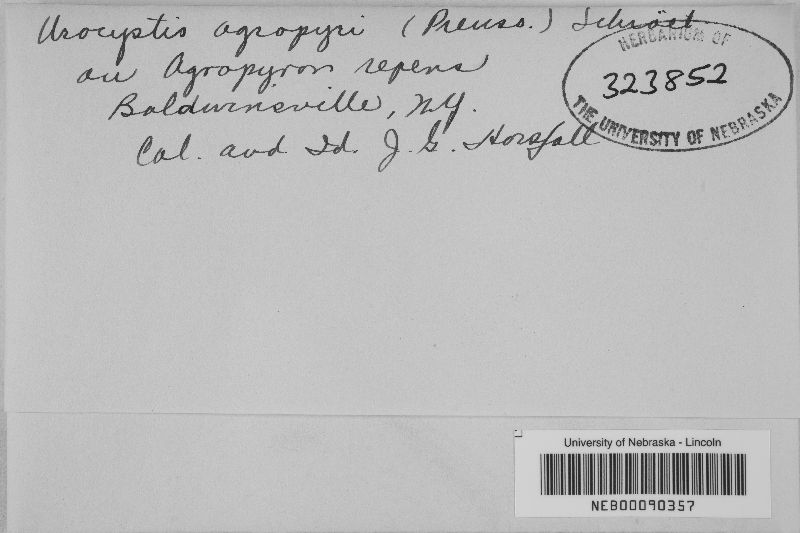 Urocystis agropyri (Preuss.) Schröet
on Agropyron repens
Baldwinsville, N.Y.
Col. and Id. J. G. Horsfall
HERBARIUM OF
323852
THE UNIVERSITY OF NEBRASKA
University of Nebraska - Lincoln
NEB00090357